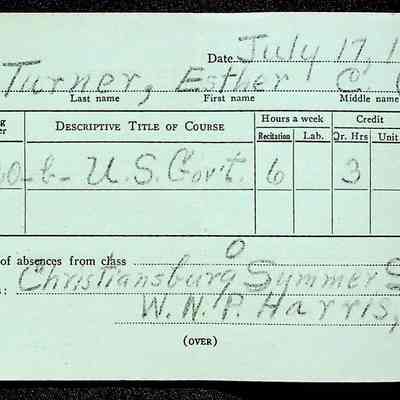 Date July 17, 1
Turner, Esther C.
Last name First name Middle name
Descriptive Title of Course Hours a week Credit
Recitation Lab. Qr. Hrs Unit
0-b- U.S. Gov't. 6 3
of absences from class 0
Christiansburg Summer S
W. N. P. Harris,
(OVER)